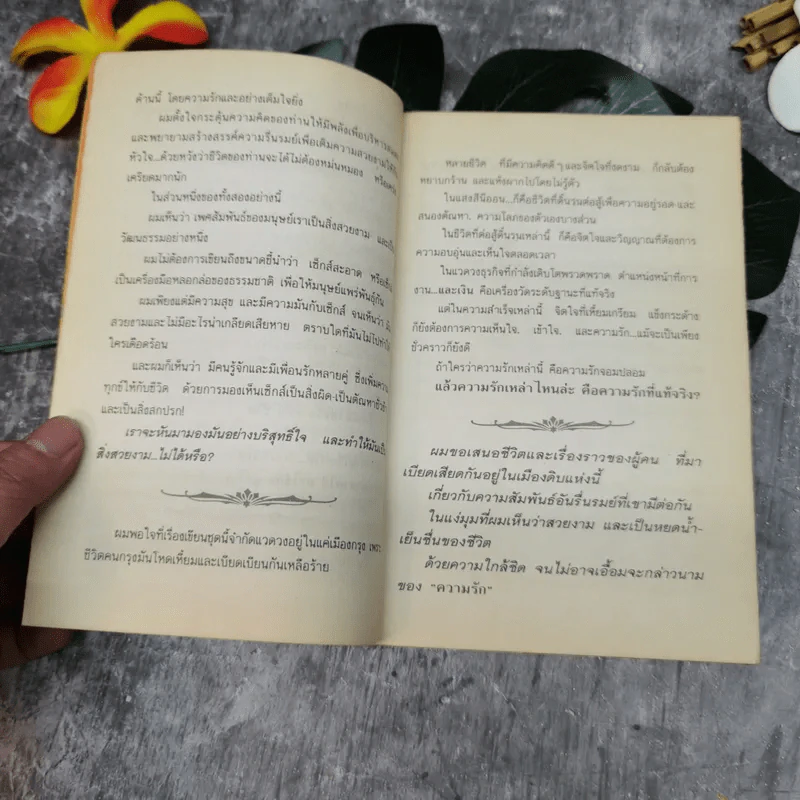 ด้านนี้ โดยความรักและอย่างเต็มใจยิ่ง
ผมตั้งใจกระตุ้นความคิดของท่านให้มีพลังเพื่อบริหาร
และพยายามสร้างสรรค์ความรื่นรมย์เพื่อเติมความสวยงามให้
หัวใจ...ด้วยหวังว่าชีวิตของท่านจะได้ไม่ต้องหม่นหมอง หรือ
เครียดมากนัก
ในส่วนหนึ่งของทั้งสองอย่างนี้
ผมเห็นว่า เพศสัมพันธ์ของมนุษย์เราเป็นสิ่งสวยงาม และเป็น
วัฒนธรรมอย่างหนึ่ง
ผมไม่ต้องการเขียนถึงขนาดชี้นำว่า เซ็กส์สะอาด หรือเซ็กส์
เป็นเครื่องมือหลอกล่อของธรรมชาติ เพื่อให้มนุษย์แพร่พันธุ์กัน
ผมเพียงแต่มีความสุข และมีความมันกับเซ็กส์ จนเห็นว่า
สวยงามและไม่มีอะไรน่าเกลียดเสียหาย ตราบใดที่มันไม่ไปทำให้
ใครเดือดร้อน
และผมก็เห็นว่า มีคนรู้จักและมีเพื่อนรักหลายคู่ ซึ่งเพิ่มความ
ทุกข์ให้กับชีวิต ด้วยการมองเห็นเซ็กส์เป็นสิ่งผิด-เป็นตัณหา
และเป็นสิ่งสกปรก!
เราจะหันมามองมันอย่างบริสุทธิ์ใจ และทำให้มันเป็น
สิ่งสวยงาม...ไม่ได้หรือ?
ผมพอใจที่เรื่องเขียนชุดนี้จำกัดแวดวงอยู่ในแค่เมืองกรุง เพราะ
ชีวิตคนกรุงมันโหดเหี้ยมและเบียดเบียนกันเหลือร้าย
หลายชีวิต ที่มีความคิดดีๆและจิตใจที่งดงาม ก็กลับต้อง
หยาบกร้าน และแห้งผากไปโดยไม่รู้ตัว
ในแสงสีนีออน...ก็คือชีวิตที่ดิ้นรนต่อสู้เพื่อความอยู่รอด และ
สนองตัณหา, ความโลภของตัวเองบางส่วน
ในชีวิตที่ต่อสู้ดิ้นรนเหล่านี้ ก็คือจิตใจและวิญญาณที่ต้องการ
ความอบอุ่นและเห็นใจตลอดเวลา
ในแวดวงธุรกิจที่กำลังเติบโตพรวดพราด ตำแหน่งหน้าที่การ
งาน...และเงิน คือเครื่องวัดระดับฐานะที่แท้จริง
แต่ในความสำเร็จเหล่านี้ จิตใจที่เหี้ยมเกรียม แข็งกระด้าง
ก็ยังต้องการความเห็นใจ, เข้าใจ, และความรัก...แม้จะเป็นเพียง
ชั่วคราวก็ยังดี
ถ้าใครว่าความรักเหล่านี้ คือความรักจอมปลอม
แล้วความรักเหล่าไหนล่ะ คือความรักที่แท้จริง?
ผมขอเสนอชีวิตและเรื่องราวของผู้คน ที่มา
เบียดเสียดกันอยู่ในเมืองดิบแห่งนี้
เกี่ยวกับความสัมพันธ์อันรื่นรมย์ที่เขามีต่อกัน
ในแง่มุมที่ผมเห็นว่าสวยงาม และเป็นหยดน้ำ-
เย็นชื่นของชีวิต
ด้วยความใกล้ชิด จนไม่อาจเอื้อมจะกล่าวนาม
ของ "ความรัก"